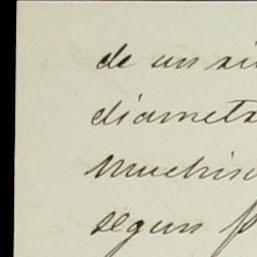 de un si
diamet
muchis
segun p